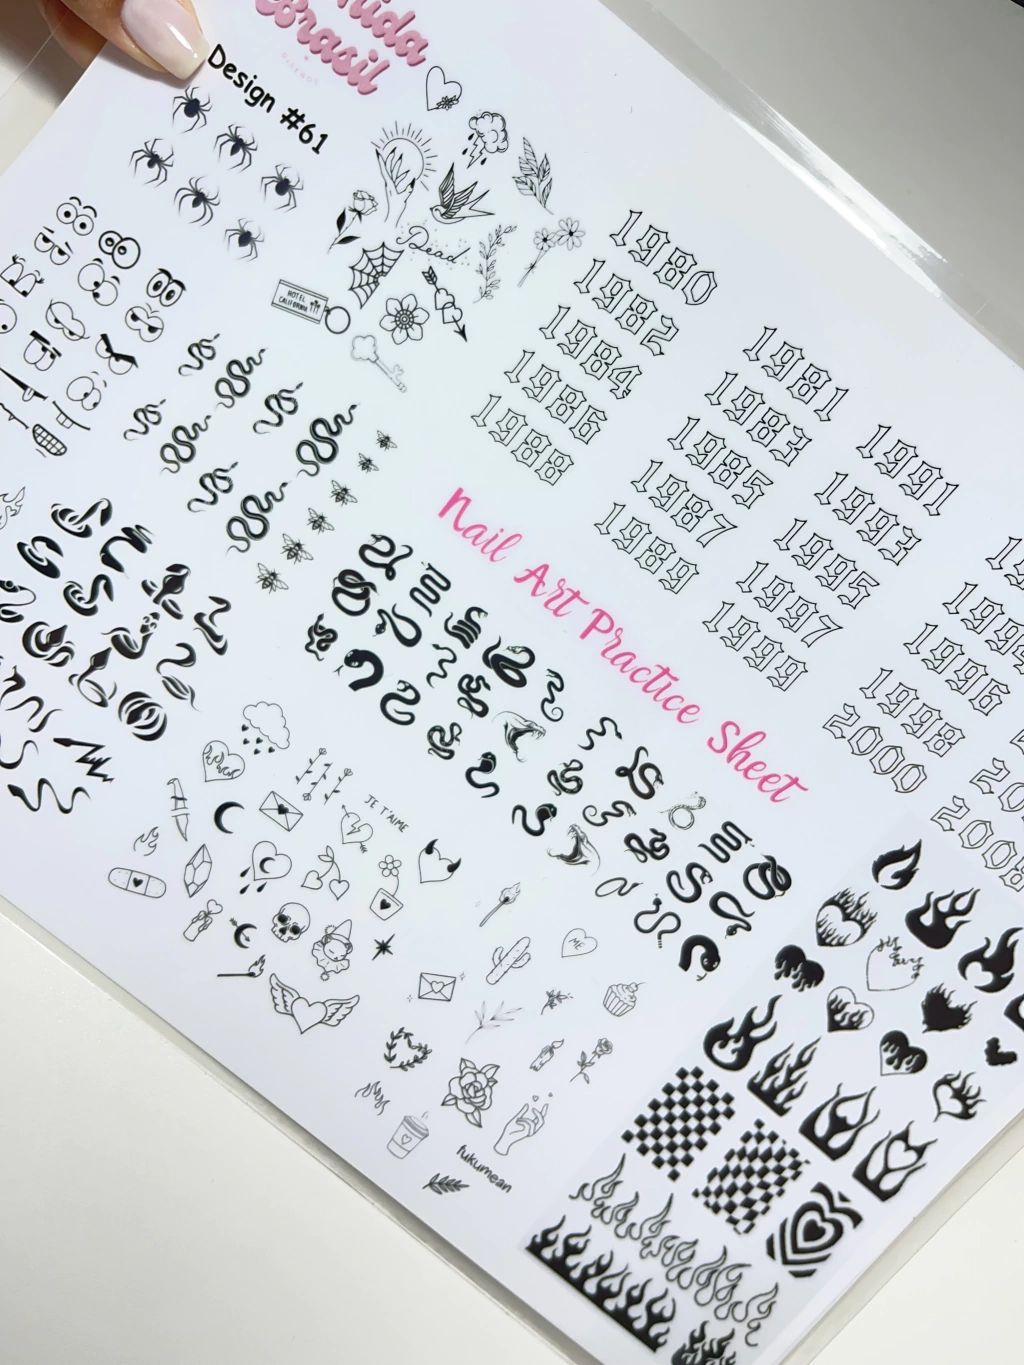 Brasil
Design #61
Read
HOTEL
CALIFORNIA
1980
1982
1984
1986
1988
1981
1983
1985
1987
1989
1991
1993
1995
1997
1999
1996
1998
2000
2008
Nail Art Practice Sheet
JE T'AIME
ME
fukumean